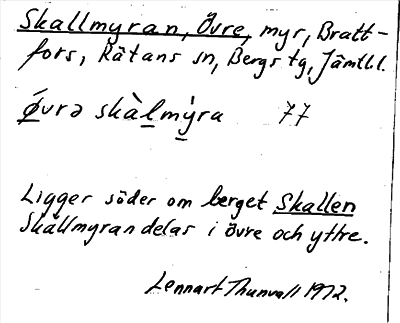 Skallmyran, Övre, myr, Bratt-
fors, Rätans sn, Bergs tg, Jämtl.l.
øvrə skàlmy̆ra 77
Ligger söder om berget Skallen
Skallmyran delas i övre och yttre.
Lennart Thunvall 1972.